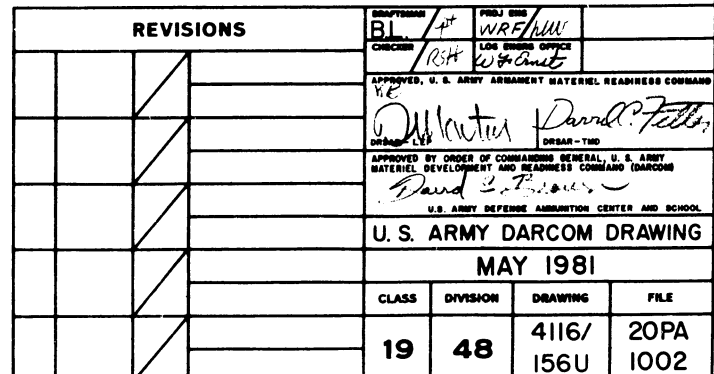 REVISIONS
DRAFTSMAN
B.L.
PROJ ENG
WRF/
CHECKER
RSH
LOG ENGRG OFFICE
W F Ernst
APPROVED, U. S. ARMY ARMAMENT MATERIEL READINESS COMMAND
DRSAR-LEP
DRSAR-TMD
APPROVED BY ORDER OF COMMANDING GENERAL, U. S. ARMY
MATERIEL DEVELOPMENT AND READINESS COMMAND (DARCOM)
U.S. ARMY DEFENSE AMMUNITION CENTER AND SCHOOL
U. S. ARMY DARCOM DRAWING
MAY 1981
CLASS DIVISION DRAWING FILE
19 48 4116/ 156U 20PA 1002